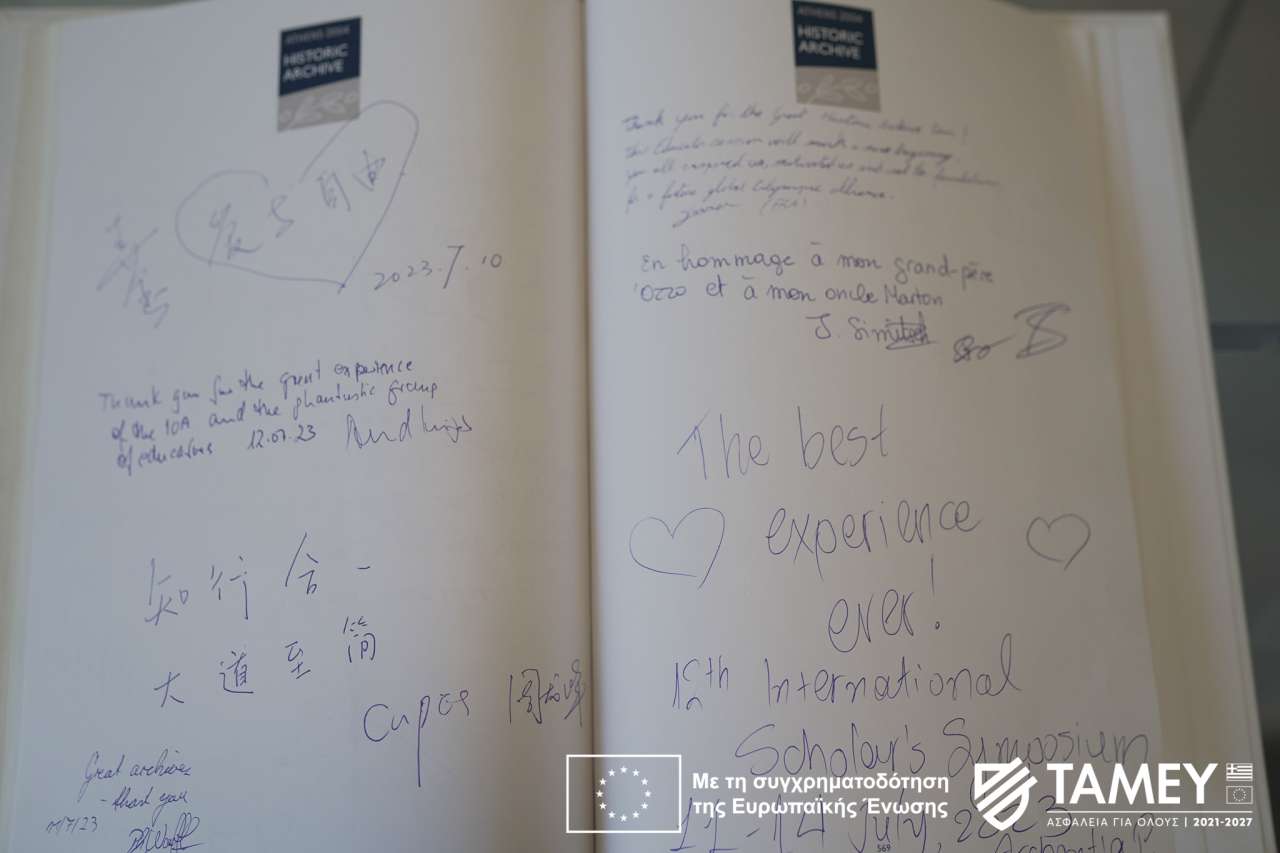 ATHENS 2004
HISTORIC
ARCHIVE
自由
2023.7.10
Thank you for the great experience
of the IOA and the phantastic group
of educators 12.07.23
知行合一
大道至简
Great archives
- thank you
11/7/23
ATHENS 2004
HISTORIC
ARCHIVE
Thank you for the Great
This Educators session will mark a new beginning
you all inspired us, motivated us and set the foundations
for a future global Olympique alliance.
En hommage à mon grand-père
'Ozzo et à mon oncle Marton
J.
The best
experience
ever!
12th International
Scholar's Symposium
11-14 July, 2023
Με τη συγχρηματοδότηση
της Ευρωπαϊκής Ένωσης
TAMEY
ΑΣΦΑΛΕΙΑ ΓΙΑ ΟΛΟΥΣ | 2021-2027
569